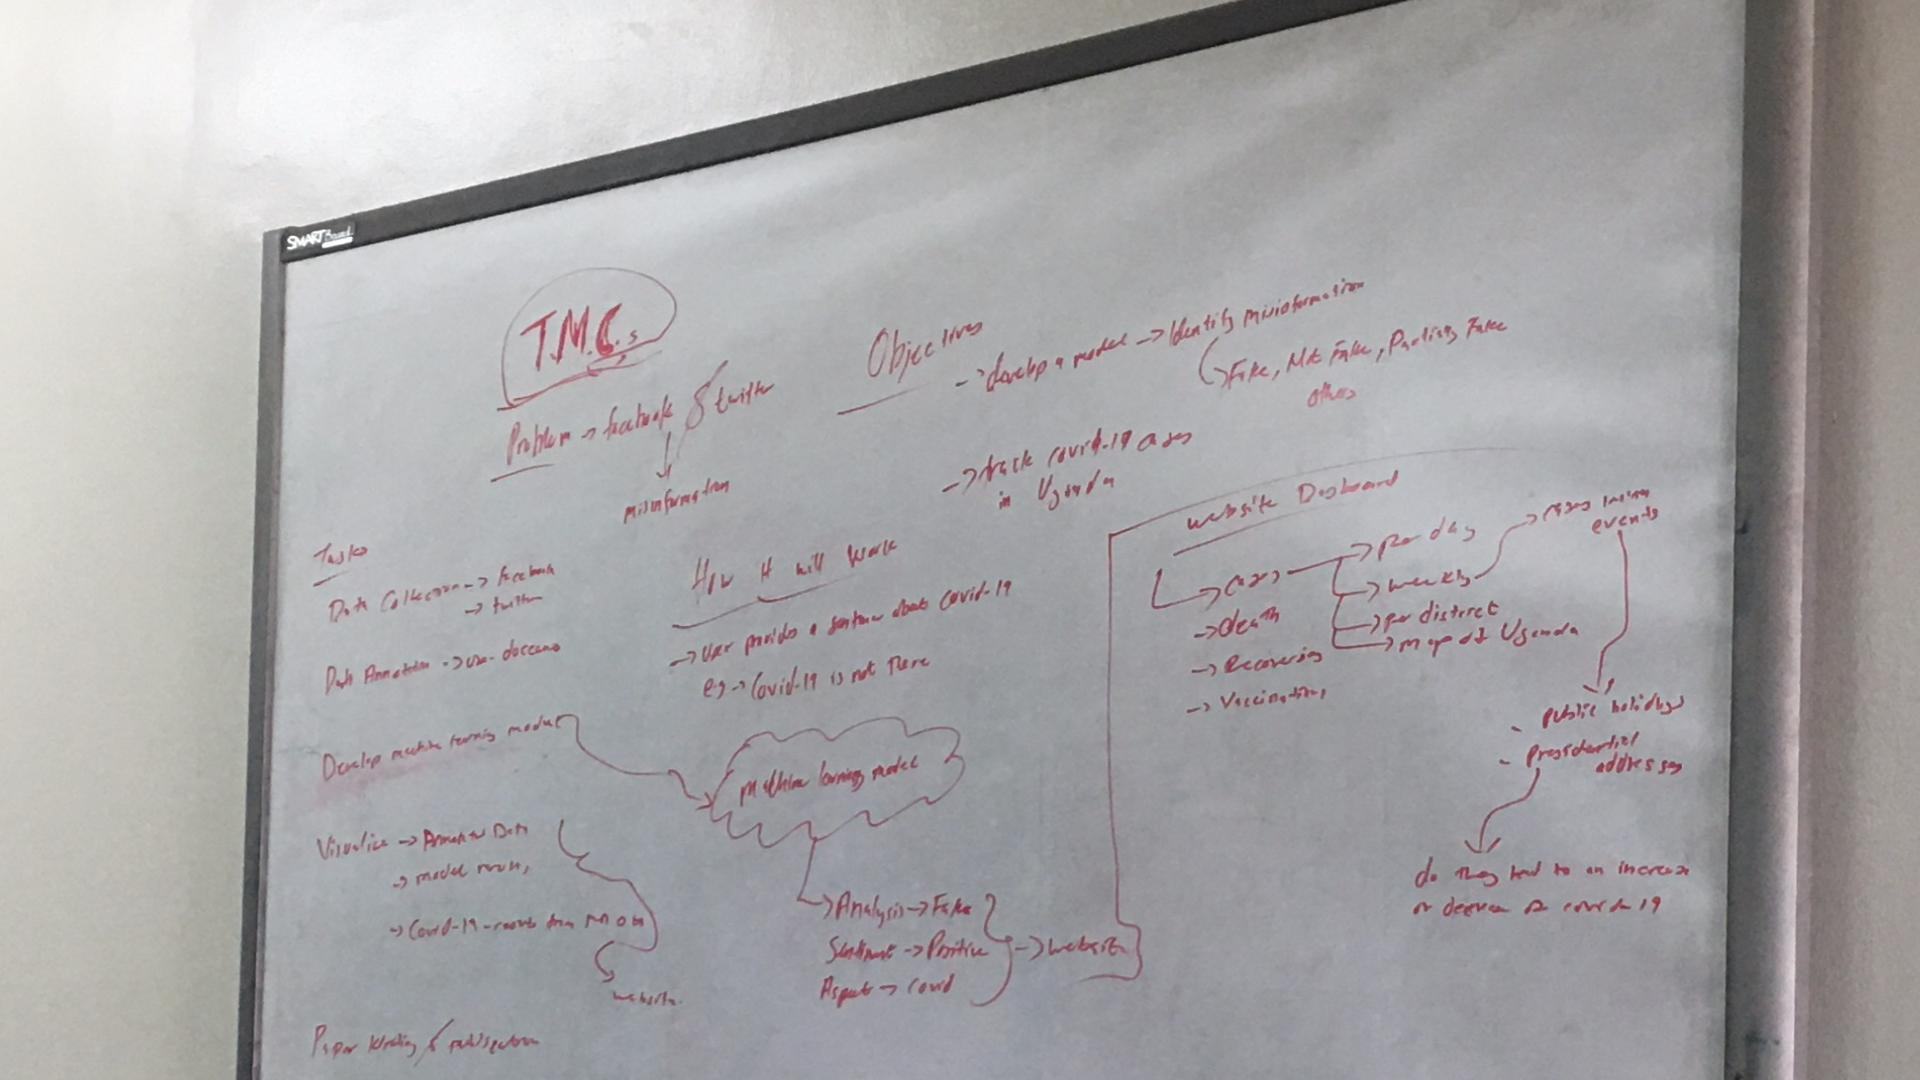 SMART Board
T.M.C.s
Problem → facebook & twitter
misinformation
Objectives
→ develop a model → Identify misinformation
→ Fake, Not Fake, Partially Fake
others
→ track covid-19 cases
in Uganda
Tasks
Data Collection → Facebook
→ twitter
Data Annotation → use - doccano
Develop machine learning model
Visualise → Annotated Data
→ model results
→ Covid-19 - results from MOH
website
Paper Writing & publication
How it will work
→ user provides a sentence about covid-19
eg → Covid-19 is not there
Machine learning model
→ Analysis → Fake
Sentiment → Positive
Aspect → covid
→ website
website Dashboard
→ cases → per day
→ weekly
→ per district
→ map of Uganda
→ death
→ Recoveries
→ Vaccinations
→ cases
events
- public holidays
- presidential
addresses
do they lead to an increase
or decrease of covid-19